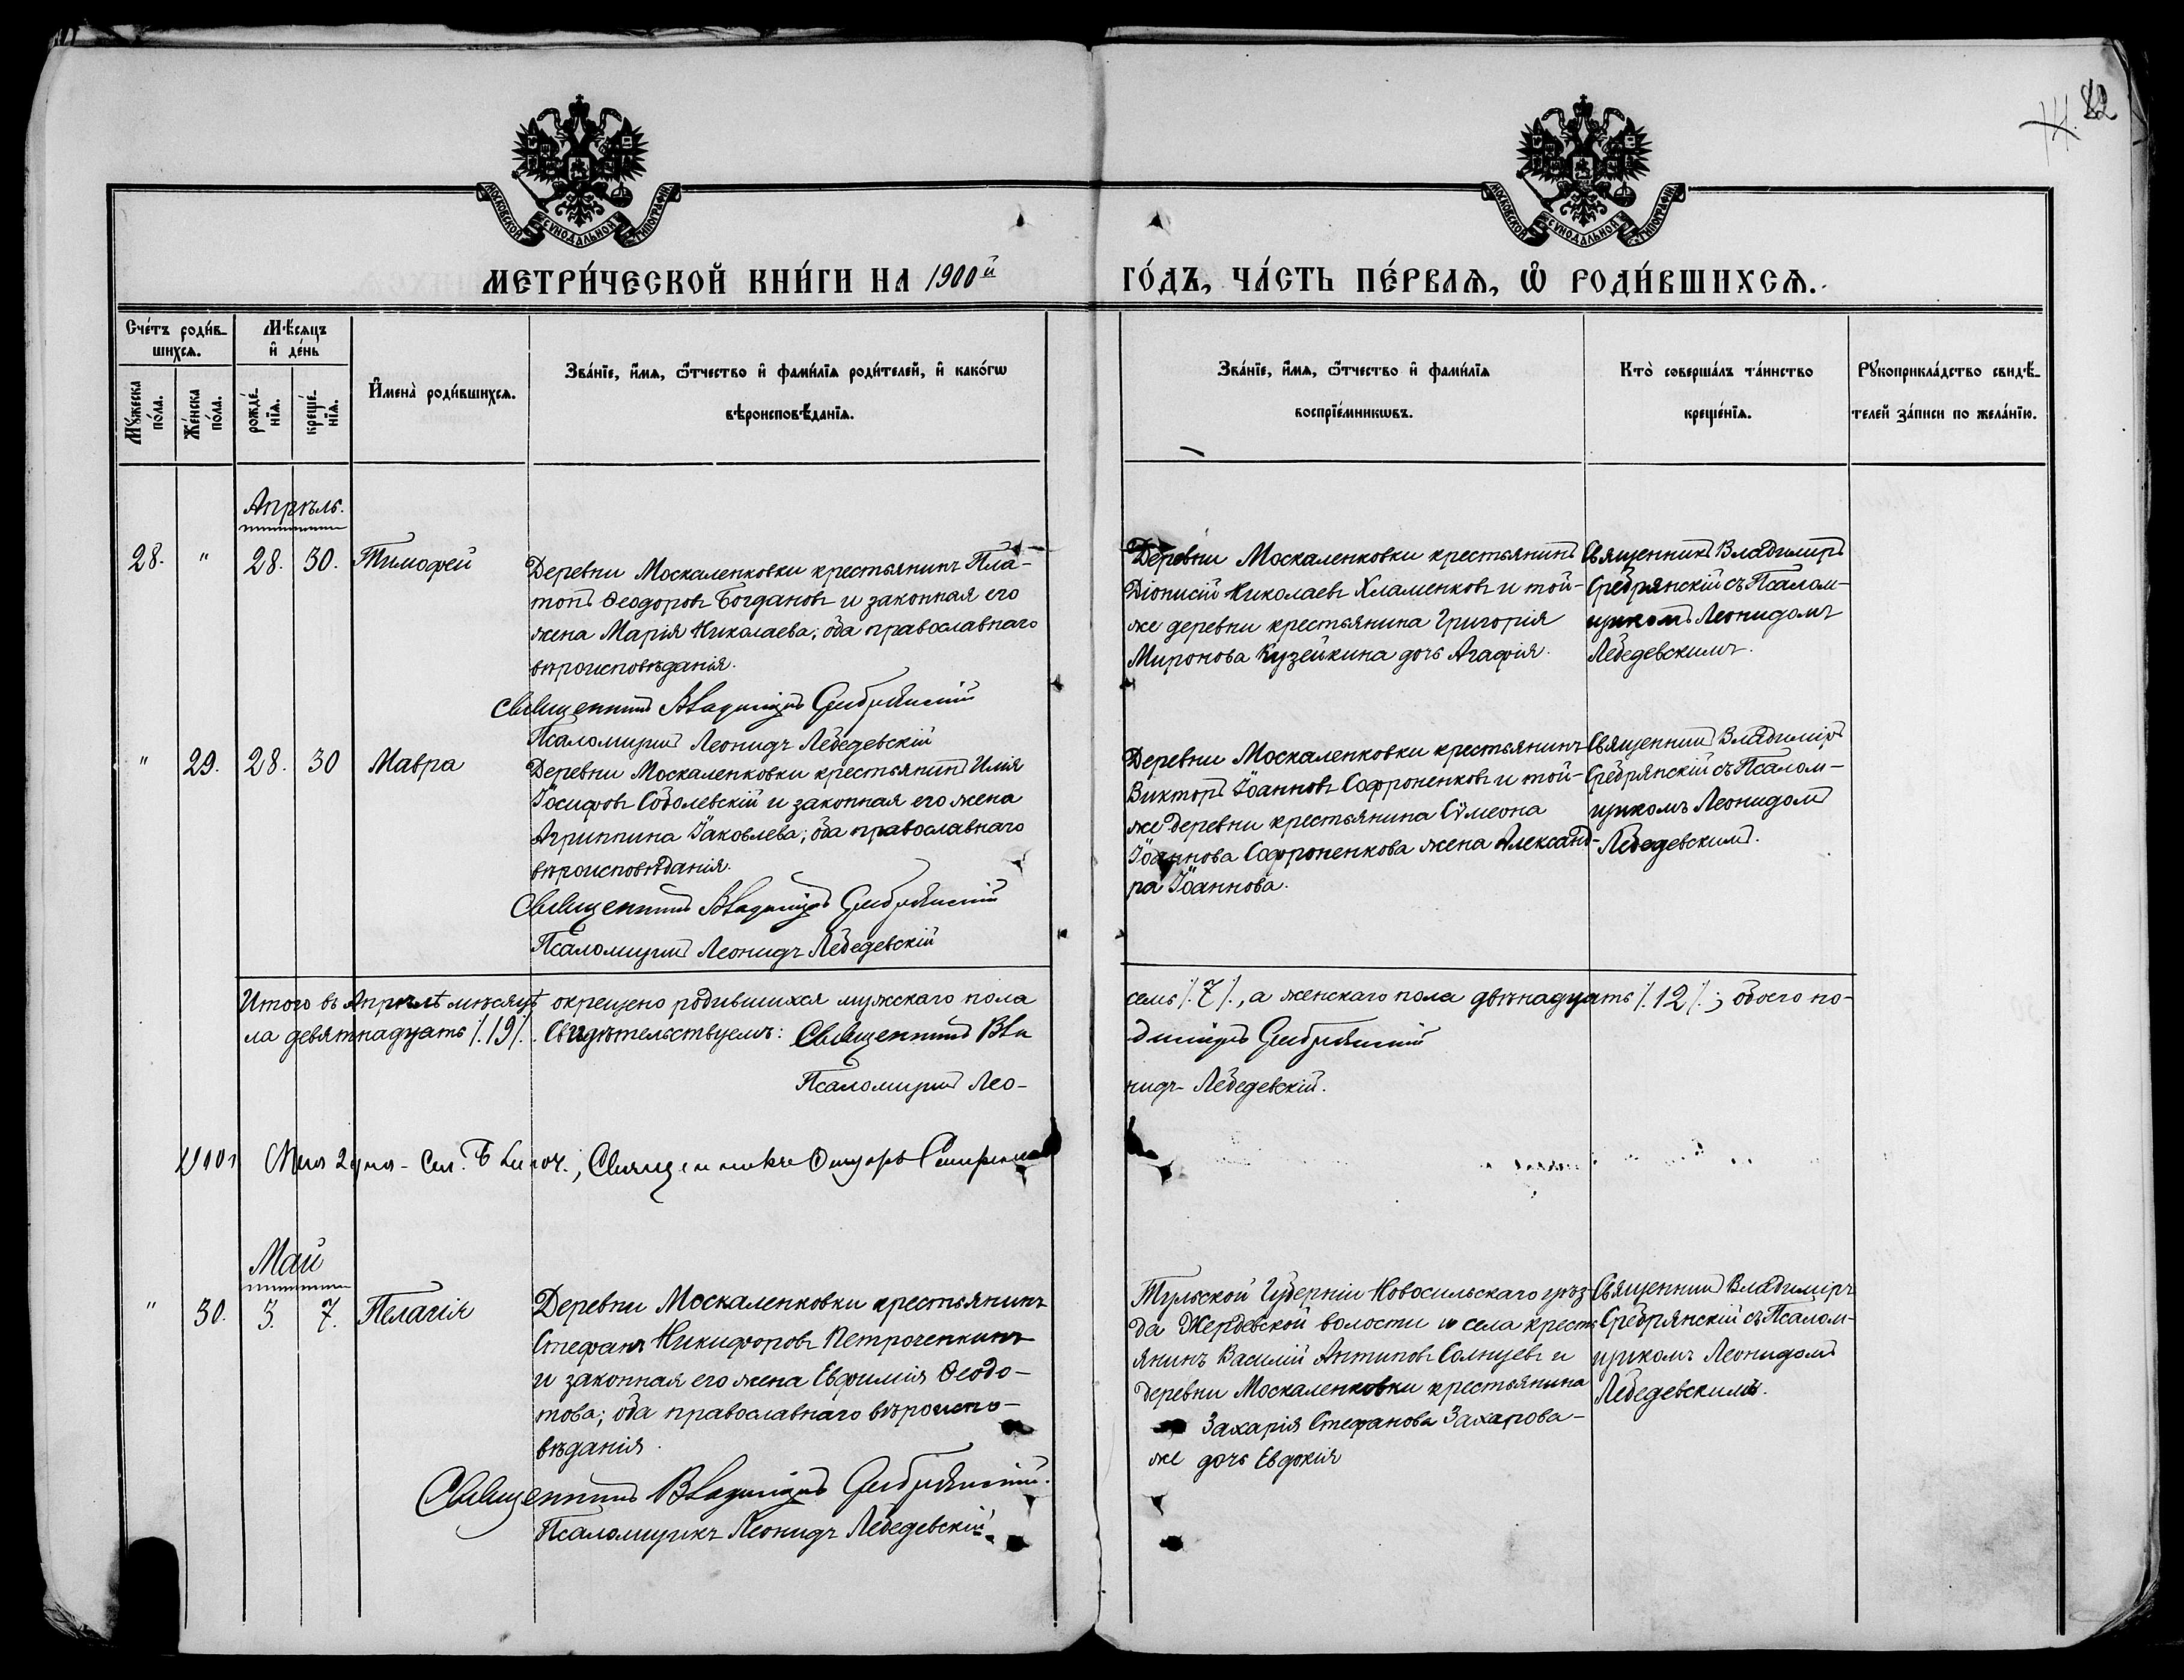 82
МОСКОВСКОЙ СУНОДАЛЬНОЙ ТИПОГРАФІИ
МОСКОВСКОЙ СУНОДАЛЬНОЙ ТИПОГРАФІИ
МЕТРИ́ЧЕСКОЙ КНИ́ГИ НА 1900й ГО́ДЪ, ЧА́СТЬ ПЕ́РВАѦ, Ѽ РОДИ́ВШИХСѦ.
Сче́тъ роди́в-
шихсѧ.
Мꙋ́жеска
по́ла.
Же́нска
по́ла.
Мѣ́сѧцъ
и҆ де́нь
рожде́-
нїѧ.
креще́-
нїѧ.
И҆мена̀ роди́вшихсѧ.
Зва́нїе, и҆́мѧ, ѻ҆́тчество и҆ фами́лїѧ роди́телей, и҆ како́гѡ
вѣроисповѣ́данїѧ.
Зва́нїе, и҆́мѧ, ѻ҆́тчество и҆ фами́лїѧ
воспрїе́мникѡвъ.
Кто̀ соверша́лъ та́инство
креще́нїѧ.
Рꙋкоприкла́дство свидѣ́-
телей за́писи по жела́нїю.
Апрѣль.
28. " 28. 30. Тимофей
Деревни Москаленковки крестьянинъ Пла-
тонъ Ѳеодоровъ Богдановъ и законная его
жена Марія Николаева; оба православнаго
вѣроисповѣданія.
Священникъ Владиміръ Сребрянскій
Псаломщикъ Леонидъ Лебедевскій
Деревни Москаленковки крестьянинъ
Діонисій Николаевъ Хламенковъ и той-
же деревни крестьянина Григорія
Миронова Кузейкина дочь Агафія.
Священникъ Владиміръ
Сребрянскій съ Псалом-
щикомъ Леонидомъ
Лебедевскимъ.
" 29. 28. 30 Мавра
Деревни Москаленковки крестьянинъ Илія
Іосифовъ Соболевскій и законная его жена
Агриппина Іаковлева; оба православнаго
вѣроисповѣданія.
Священникъ Владиміръ Сребрянскій
Псаломщикъ Леонидъ Лебедевскій
Деревни Москаленковки крестьянинъ
Викторъ Іоанновъ Софроненковъ и той-
же деревни крестьянина Сѵмеона
Іоаннова Софроненкова жена Александ-
ра Іоаннова.
Священникъ Владиміръ
Сребрянскій съ Псалом-
щикомъ Леонидомъ
Лебедевскимъ.
Итого въ Апрѣлѣ мѣсяцѣ окрещено родившихся мужскаго пола семь /.7/., а женскаго пола двѣнадцать /.12/.; обоего по-
ла девятнадцать /.19/. Свидѣтельствуемъ: Священникъ Владиміръ Сребрянскій
Псаломщикъ Леонидъ Лебедевскій.
Мая 2 дня - Священникъ
Май
" 30. 3. 7. Пелагія
Деревни Москаленковки крестьянинъ
Стефанъ Никифоровъ Петроченкинъ
и законная его жена Евфимія Ѳеодо-
това; оба православнаго вѣроиспо-
вѣданія.
Священникъ Владиміръ Сребрянскій.
Псаломщикъ Леонидъ Лебедевскій.
Тульской Губерніи Новосильскаго уѣз-
да Жердевской волости и села кресть
янинъ Василій Антиповъ Солнцевъ и
деревни Москаленковки крестьянина
Захарія Стефанова Захарова-
же дочь Евдокія
Священникъ Владиміръ
Сребрянскій съ Псалом-
щикомъ Леонидомъ
Лебедевскимъ.